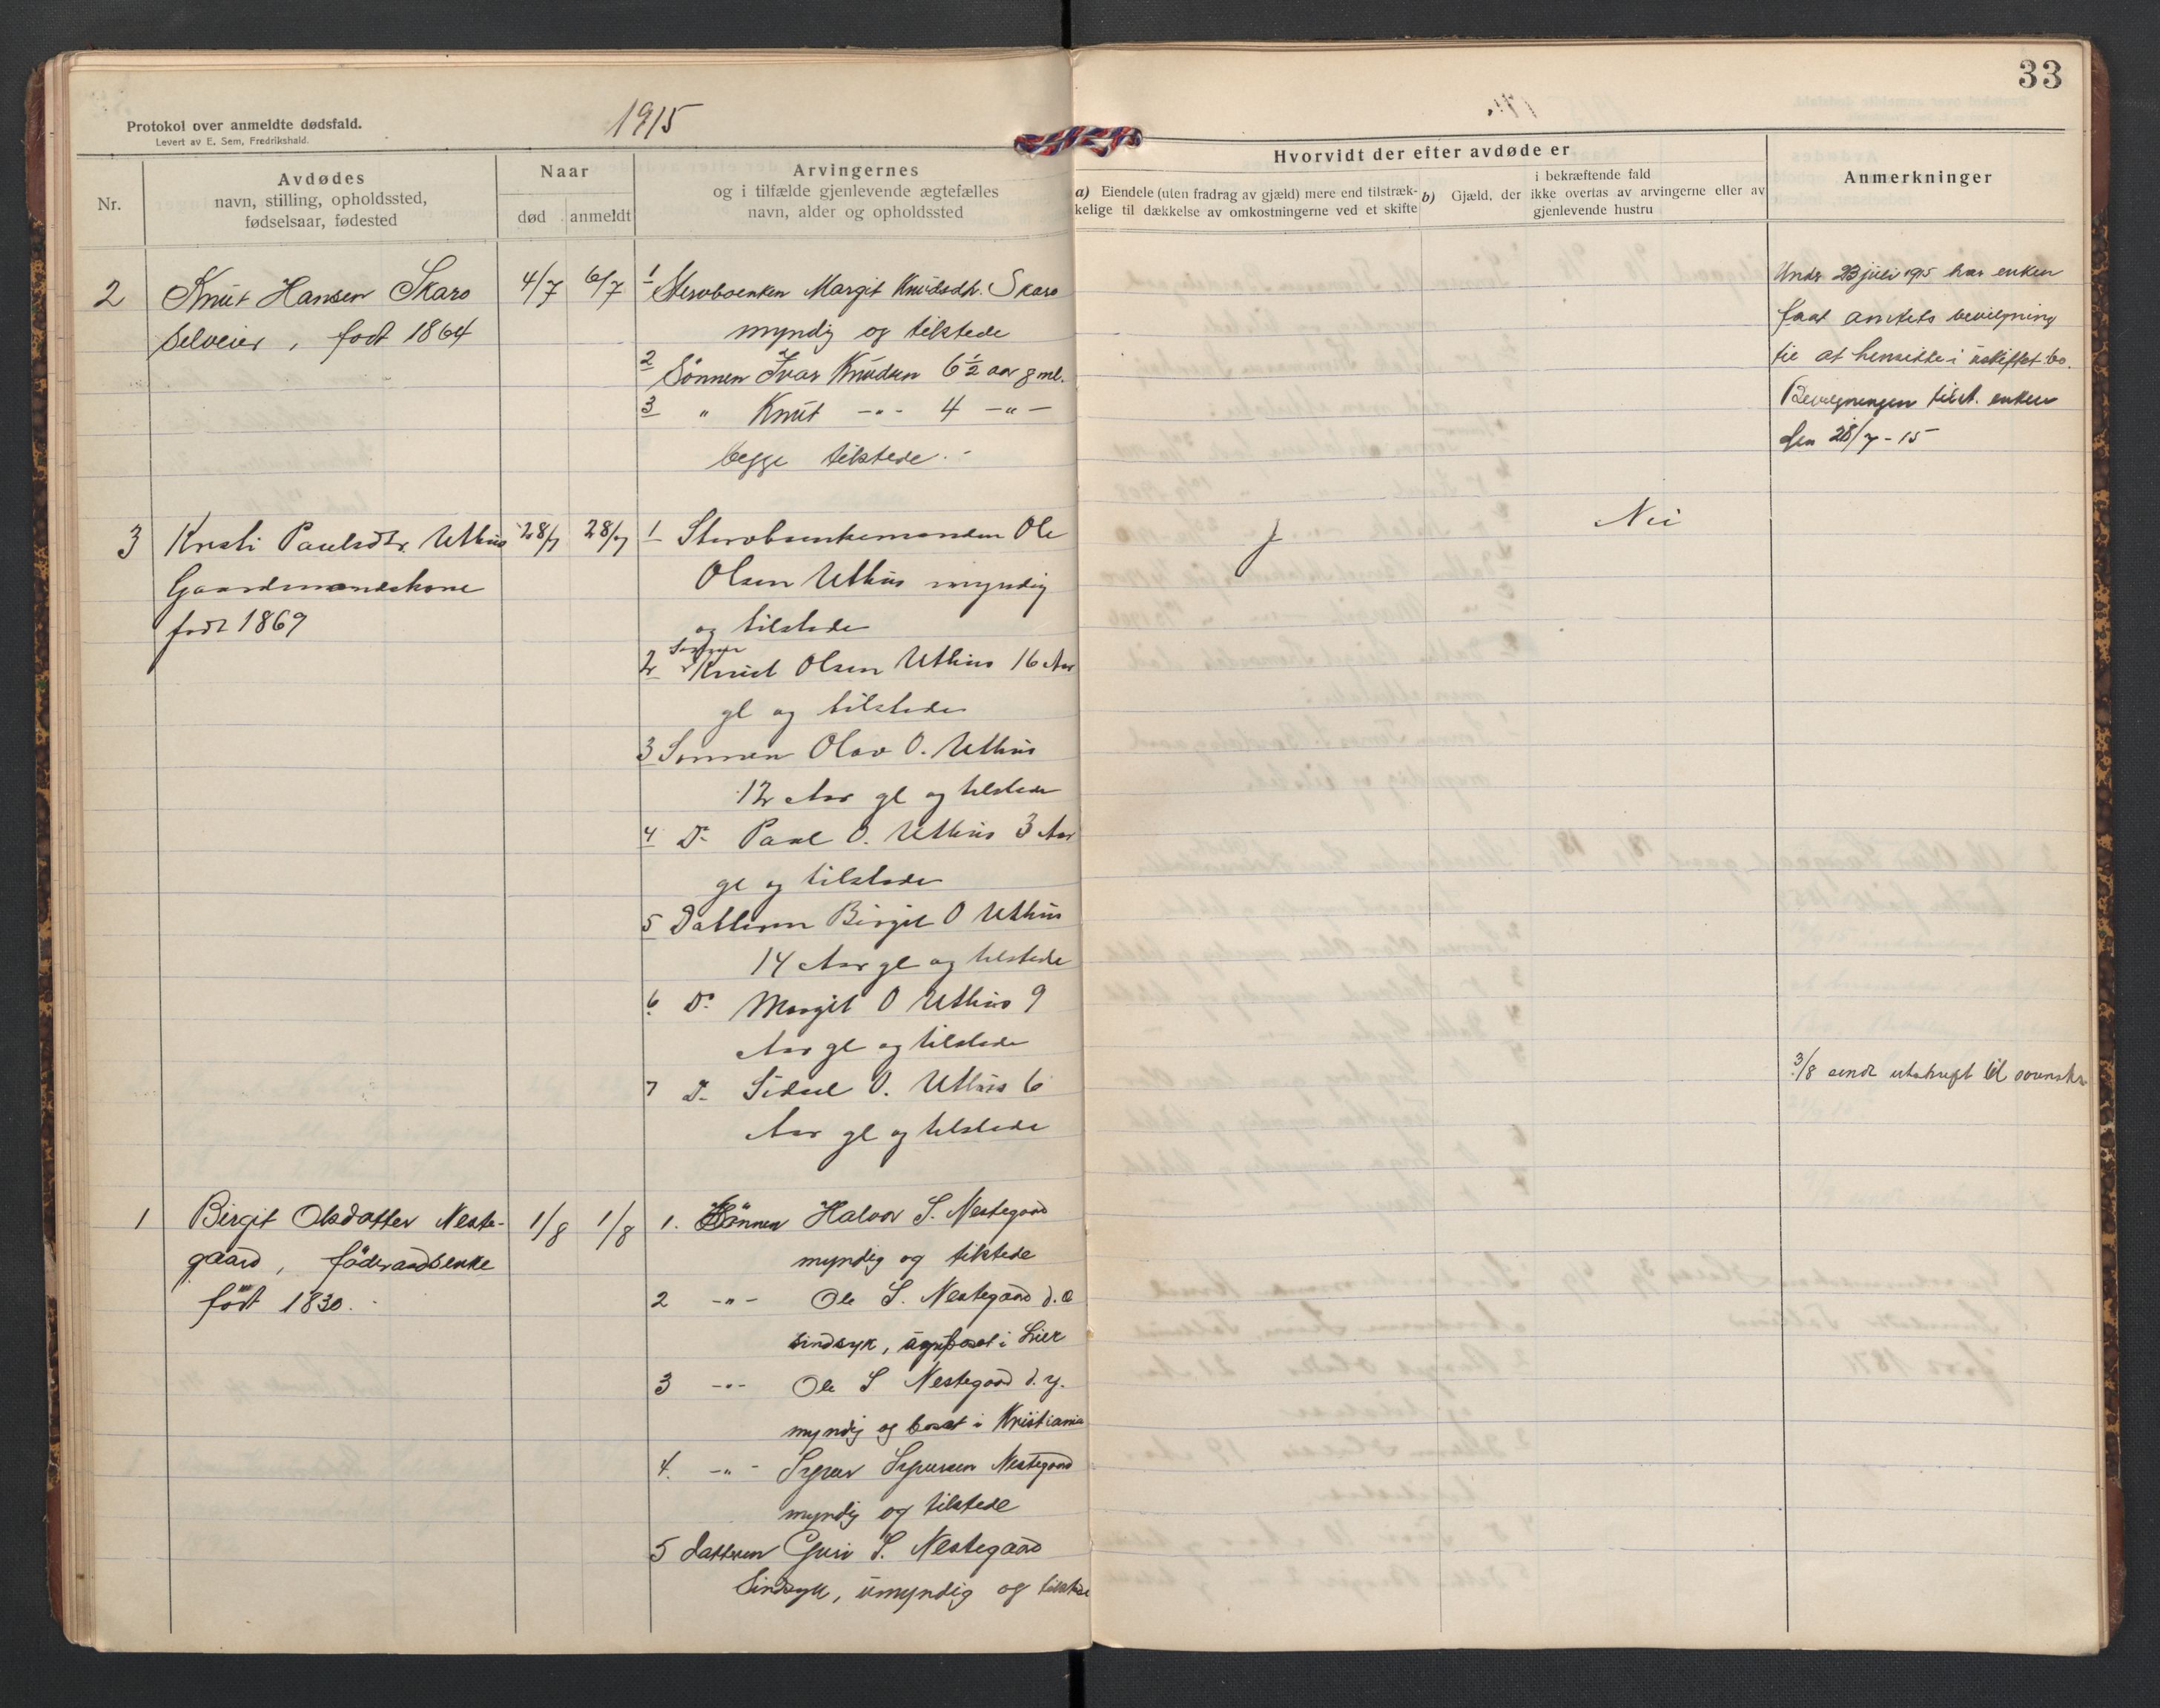 33
Protokol over anmeldte dødsfald.
Levert av E. Sem, Fredrikshald.
1915
Nr.
Avdødes
navn, stilling, opholdssted,
fødselsaar, fødested
Naar
død
anmeldt
Arvingernes
og i tilfælde gjenlevende ægtefælles
navn, alder og opholdssted
Hvorvidt der efter avdøde er
a) Eiendele (uten fradrag av gjæld) mere end tilstræk-
kelige til dækkelse av omkostningerne ved et skifte
i bekræftende fald
b) Gjæld, der ikke overtas av arvingerne eller av
gjenlevende hustru
Anmerkninger
2
Knut Hansen Skaro
selveier, født 1864
4/7 6/7
1 Stervboenken Margit Knudsdtr. Skaro
myndig og tilstede
2 Sönnen Ivar Knudsen 6 1/2 aar gml.
3 " Knut -"- 4 -"-
begge tilstede.
Undr. 23 juli 1915 har enken
faat amtets bevilgning
til at hensitte i uskiftet bo.
Bevilgningen tilst. enken
den 28/7-15
3
Kristi Paulsdtr. Uthus
Gaardmandskone
født 1869
28/7 28/7
1 Stervboenkemanden Ole
Olsen Uthus myndig
og tilstede
2 Sønnen Knut Olsen Uthus 16 Aar
gl og tilstede
3 Sønnen Olav O. Uthus
12 Aar gl og tilstede
4 Do Paul O. Uthus 3 Aar
gl og tilstede
5 Datteren Birgit O Uthus
14 Aar gl og tilstede
6 Do Margit O Uthus 9
Aar gl og tilstede
7 Do Sidsel O. Uthus 6
Aar gl og tilstede
J
Nei
3/8 sendt utskrift til sorenskr.
1
Birgit Olsdatter Neste-
gaard, föderaadsenke
født 1830.
1/8 1/8
1. Sönnen Halvor S. Nestegaard
myndig og tilstede
2 -"- Ole S. Nestegaard d.e
sindsyk, i Lier
3 -"- Ole S Nestegaard d.y.
myndig og bosat i Kristiania
4. -"- Sjgurssen Nestegaard
myndig og tilstede
5 datteren Guri S. Nestegaard
Sindsyk, umyndig og tilstede